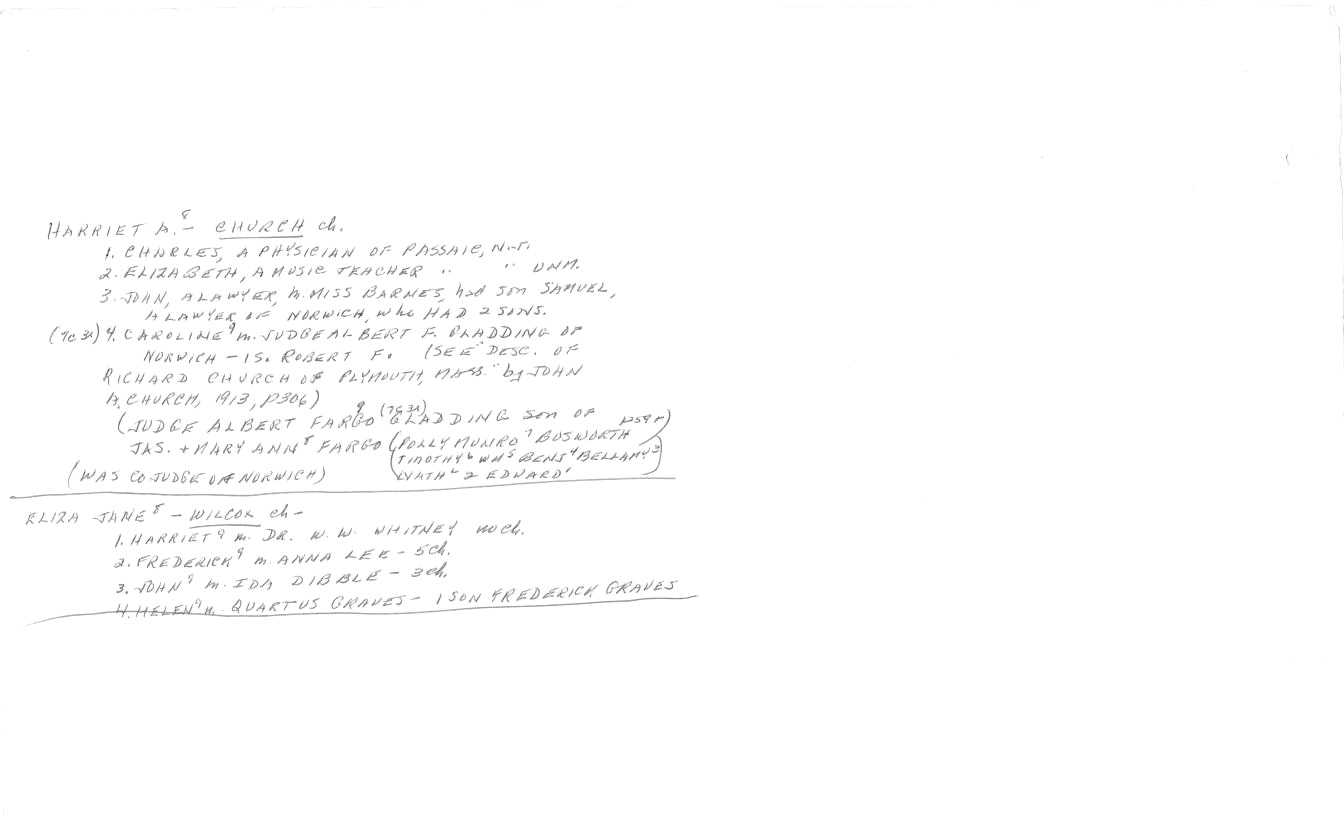 HARRIET A.⁸ - CHURCH ch.
1. CHARLES, A PHYSICIAN OF PASSAIC, N.J.
2. ELIZABETH, A MUSIC TEACHER " " UNM.
3. JOHN, A LAWYER, m. MISS BARNES, had son SAMUEL,
A LAWYER OF NORWICH, who HAD 2 SONS.
4. CAROLINE⁹ m. JUDGE ALBERT F. GLADDING OF
NORWICH - 1 S. ROBERT F. (SEE "DESC. OF
RICHARD CHURCH OF PLYMOUTH, MASS." by JOHN
A. CHURCH, 1913, p306)
(JUDGE ALBERT FARGO⁹ GLADDING son OF
JAS. + MARY ANN⁸ FARGO (POLLY MUNRO⁷ BOSWORTH
TIMOTHY⁶ WM⁵ BENJ⁴ BELLAMY³
2 EDWARD¹
(WAS CO. JUDGE OF NORWICH)
ELIZA JANE⁸ - WILCOX ch -
1. HARRIET⁹ m. DR. W. W. WHITNEY no ch.
2. FREDERICK⁹ m. ANNA LEE - 5 ch.
3. JOHN⁹ m. IDA DIBBLE - 3 ch.
4. HELEN⁹ m. QUARTUS GRAVES - 1 SON FREDERICK GRAVES